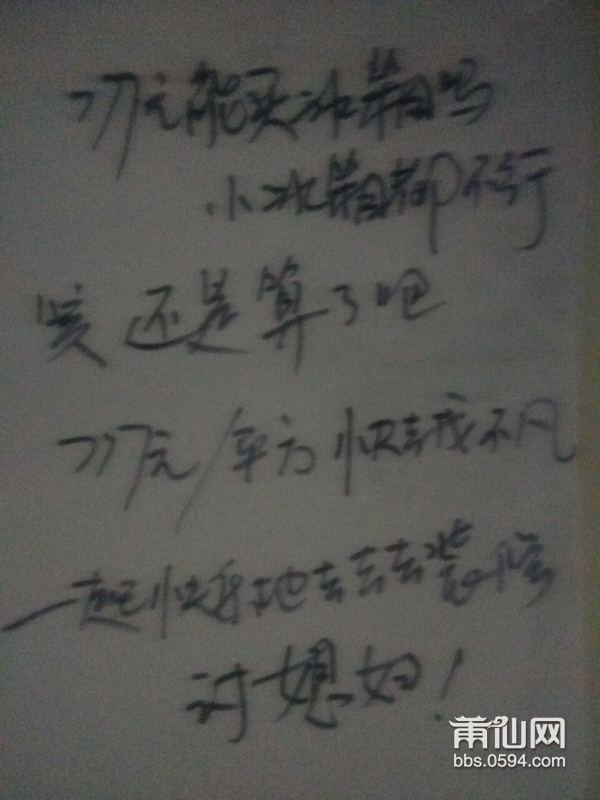 777元能买冰箱吗
小冰箱都不行
唉 还是算了吧
777元/平方 快去找不凡
一起快乐地去去去装修
讨媳妇！
莆仙网
bbs.0594.com